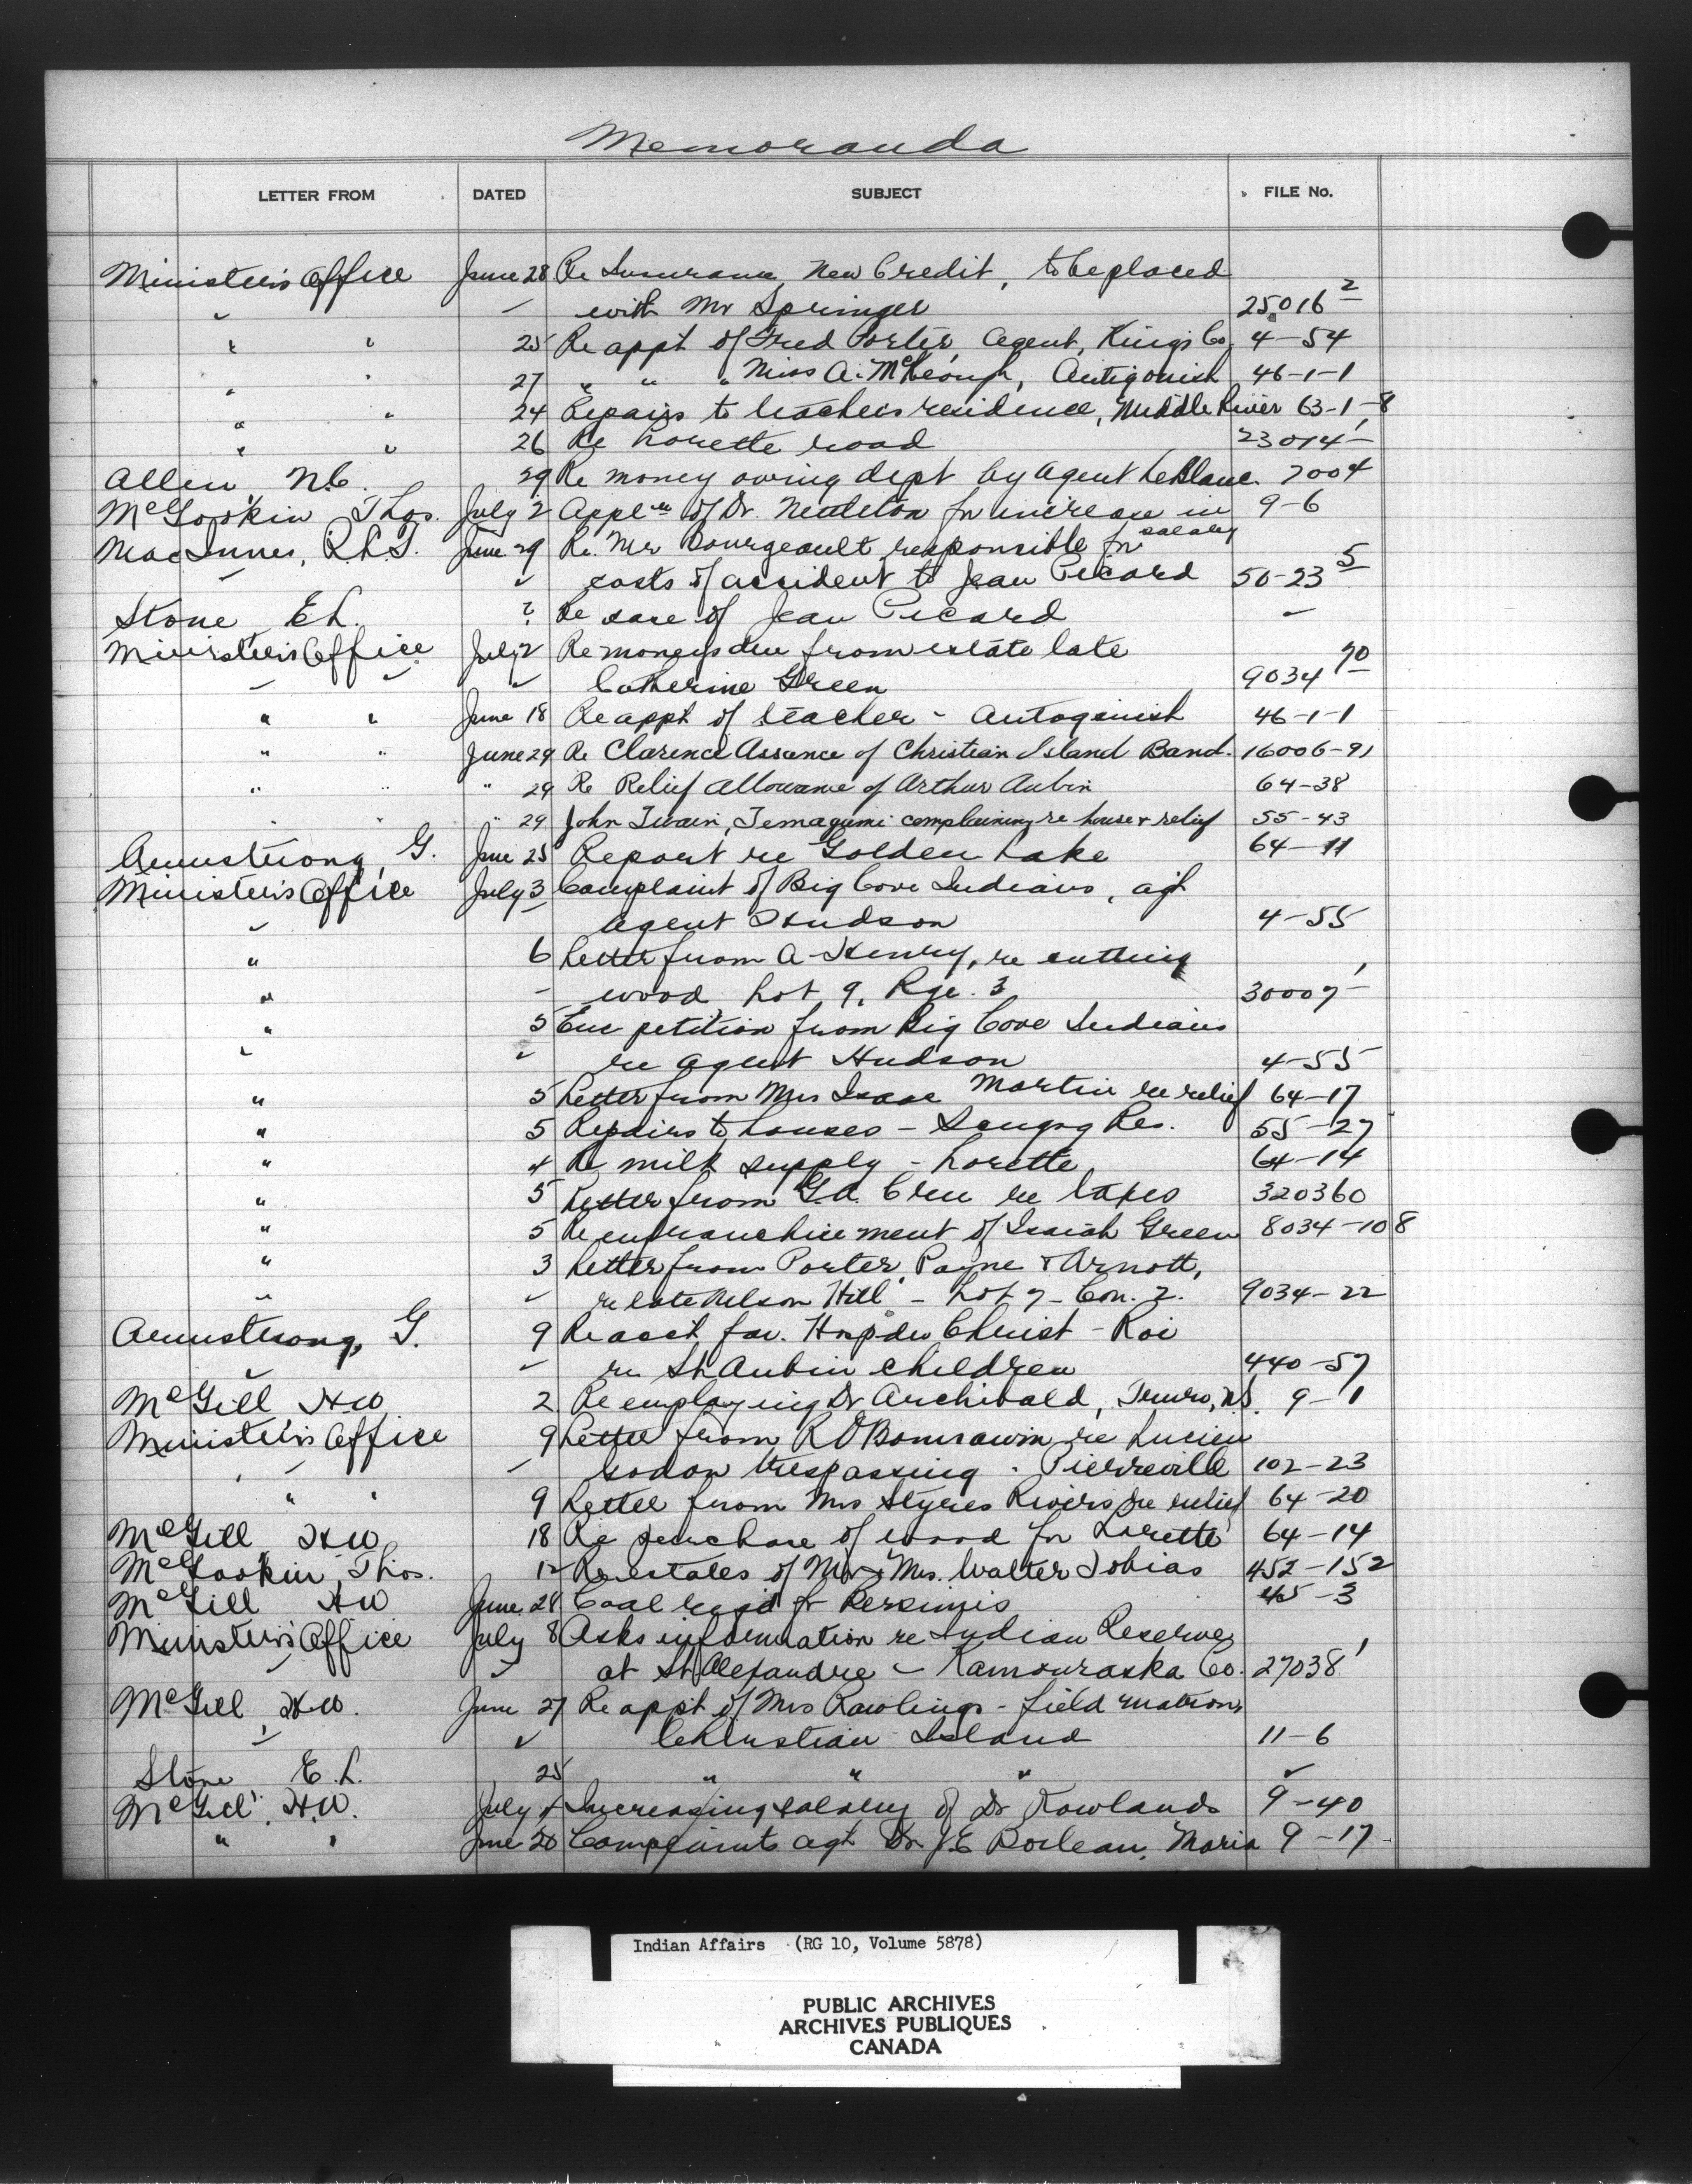 Memoranda
LETTER FROM DATED SUBJECT FILE No.
Minister's Office June 28 Re Insurance, New Credit, to be placed
" - with Mr Springer 25016 2
" " 25 Re appt of Fred Porter, Agent, Kings Co. 4-54
" " 27 " " " Miss A. McKeough, Antigonish 46-1-1
" " 24 Repairs to teacher's residence, Middle River 63-1-8
" " 26 Re Lorette road 23014 1
Allen N.C. 29 Re money owing dept by Agent LeBlanc. 7004
McGookin Thos. July 2 Appln of Dr. for increase in salary 9-6
MacInnes, T.R.L. June 29 Re. Mr Bourgeault responsible for
" " costs of accident to Jean Picard 50-23 5
Stone E L. ? Re care of Jean Picard -
Minister's Office July 2 Re moneys due from estate late
" " " Catherine Green 9034 70
" " June 18 Re appt of teacher - Antogonish 46-1-1
" " June 29 Re Clarence Assance of Christian Island Band. 16006-91
" " " 29 Re Relief allowance of Arthur Aubin 64-38
" " " 29 John Twain, Temagumi complaining re house & relief 55-43
Armstrong, G. June 25 Report re Golden Lake 64-11
Minister's Office July 3 Complaint of Big Cove Indians, agst
" Agent Hudson 4-55
" 6 Letter from A. Henry, re cutting
" - wood Lot 9, Rge. 3 30007 1
" 5 Enc petition from Big Cove Indians
" " re Agent Hudson 4-55
" 5 Letter from Mrs Isaac Martin re relief 64-17
" 5 Repairs to houses - Scugog Res. 55-27
" 4 Re milk supply - Lorette 64-14
" 5 Letter from G.A. Cree re taxes 320360
" 5 Re enfranchisement of Isaiah Green 8034-108
" 3 Letter from Porter, Payne & Arnott,
" " re late Nelson Hill - Lot 7 - Con. 2. 9034-22
Armstrong, G. 9 Re acct fav. Hosp du Christ-Roi
" " re St Aubin children 440-57
McGill H W 2 Re employing Dr Archibald, Truro, N.S. 9-1
Minister's Office 9 Letter from R O re Lucien
" " " trespassing - Pierreville 102-23
" " 9 Letter from Mrs Styres Rivers re relief 64-20
McGill H W 18 Re purchase of wood for Lorette 64-14
McGookin Thos. 12 Re estates of Mr & Mrs. Walter Tobias 452-152
McGill H W June 28 Coal reqd for Bersimis 45-3
Minister's Office July 8 Asks information re Indian Reserve
" " at St Alexandre - Kamouraska Co. 27038 1
McGill H W. June 27 Re appt of Mrs Rawlings - field matron,
" " Christian Island 11-6
Stone E. L. 25 " " " "
McGill H.W. July 4 Increasing salary of Dr Rowlands 9-40
" " June 20 Complaints agt Dr J.E Boileau, Maria 9-17
Indian Affairs (RG 10, Volume 5878)
PUBLIC ARCHIVES
ARCHIVES PUBLIQUES
CANADA